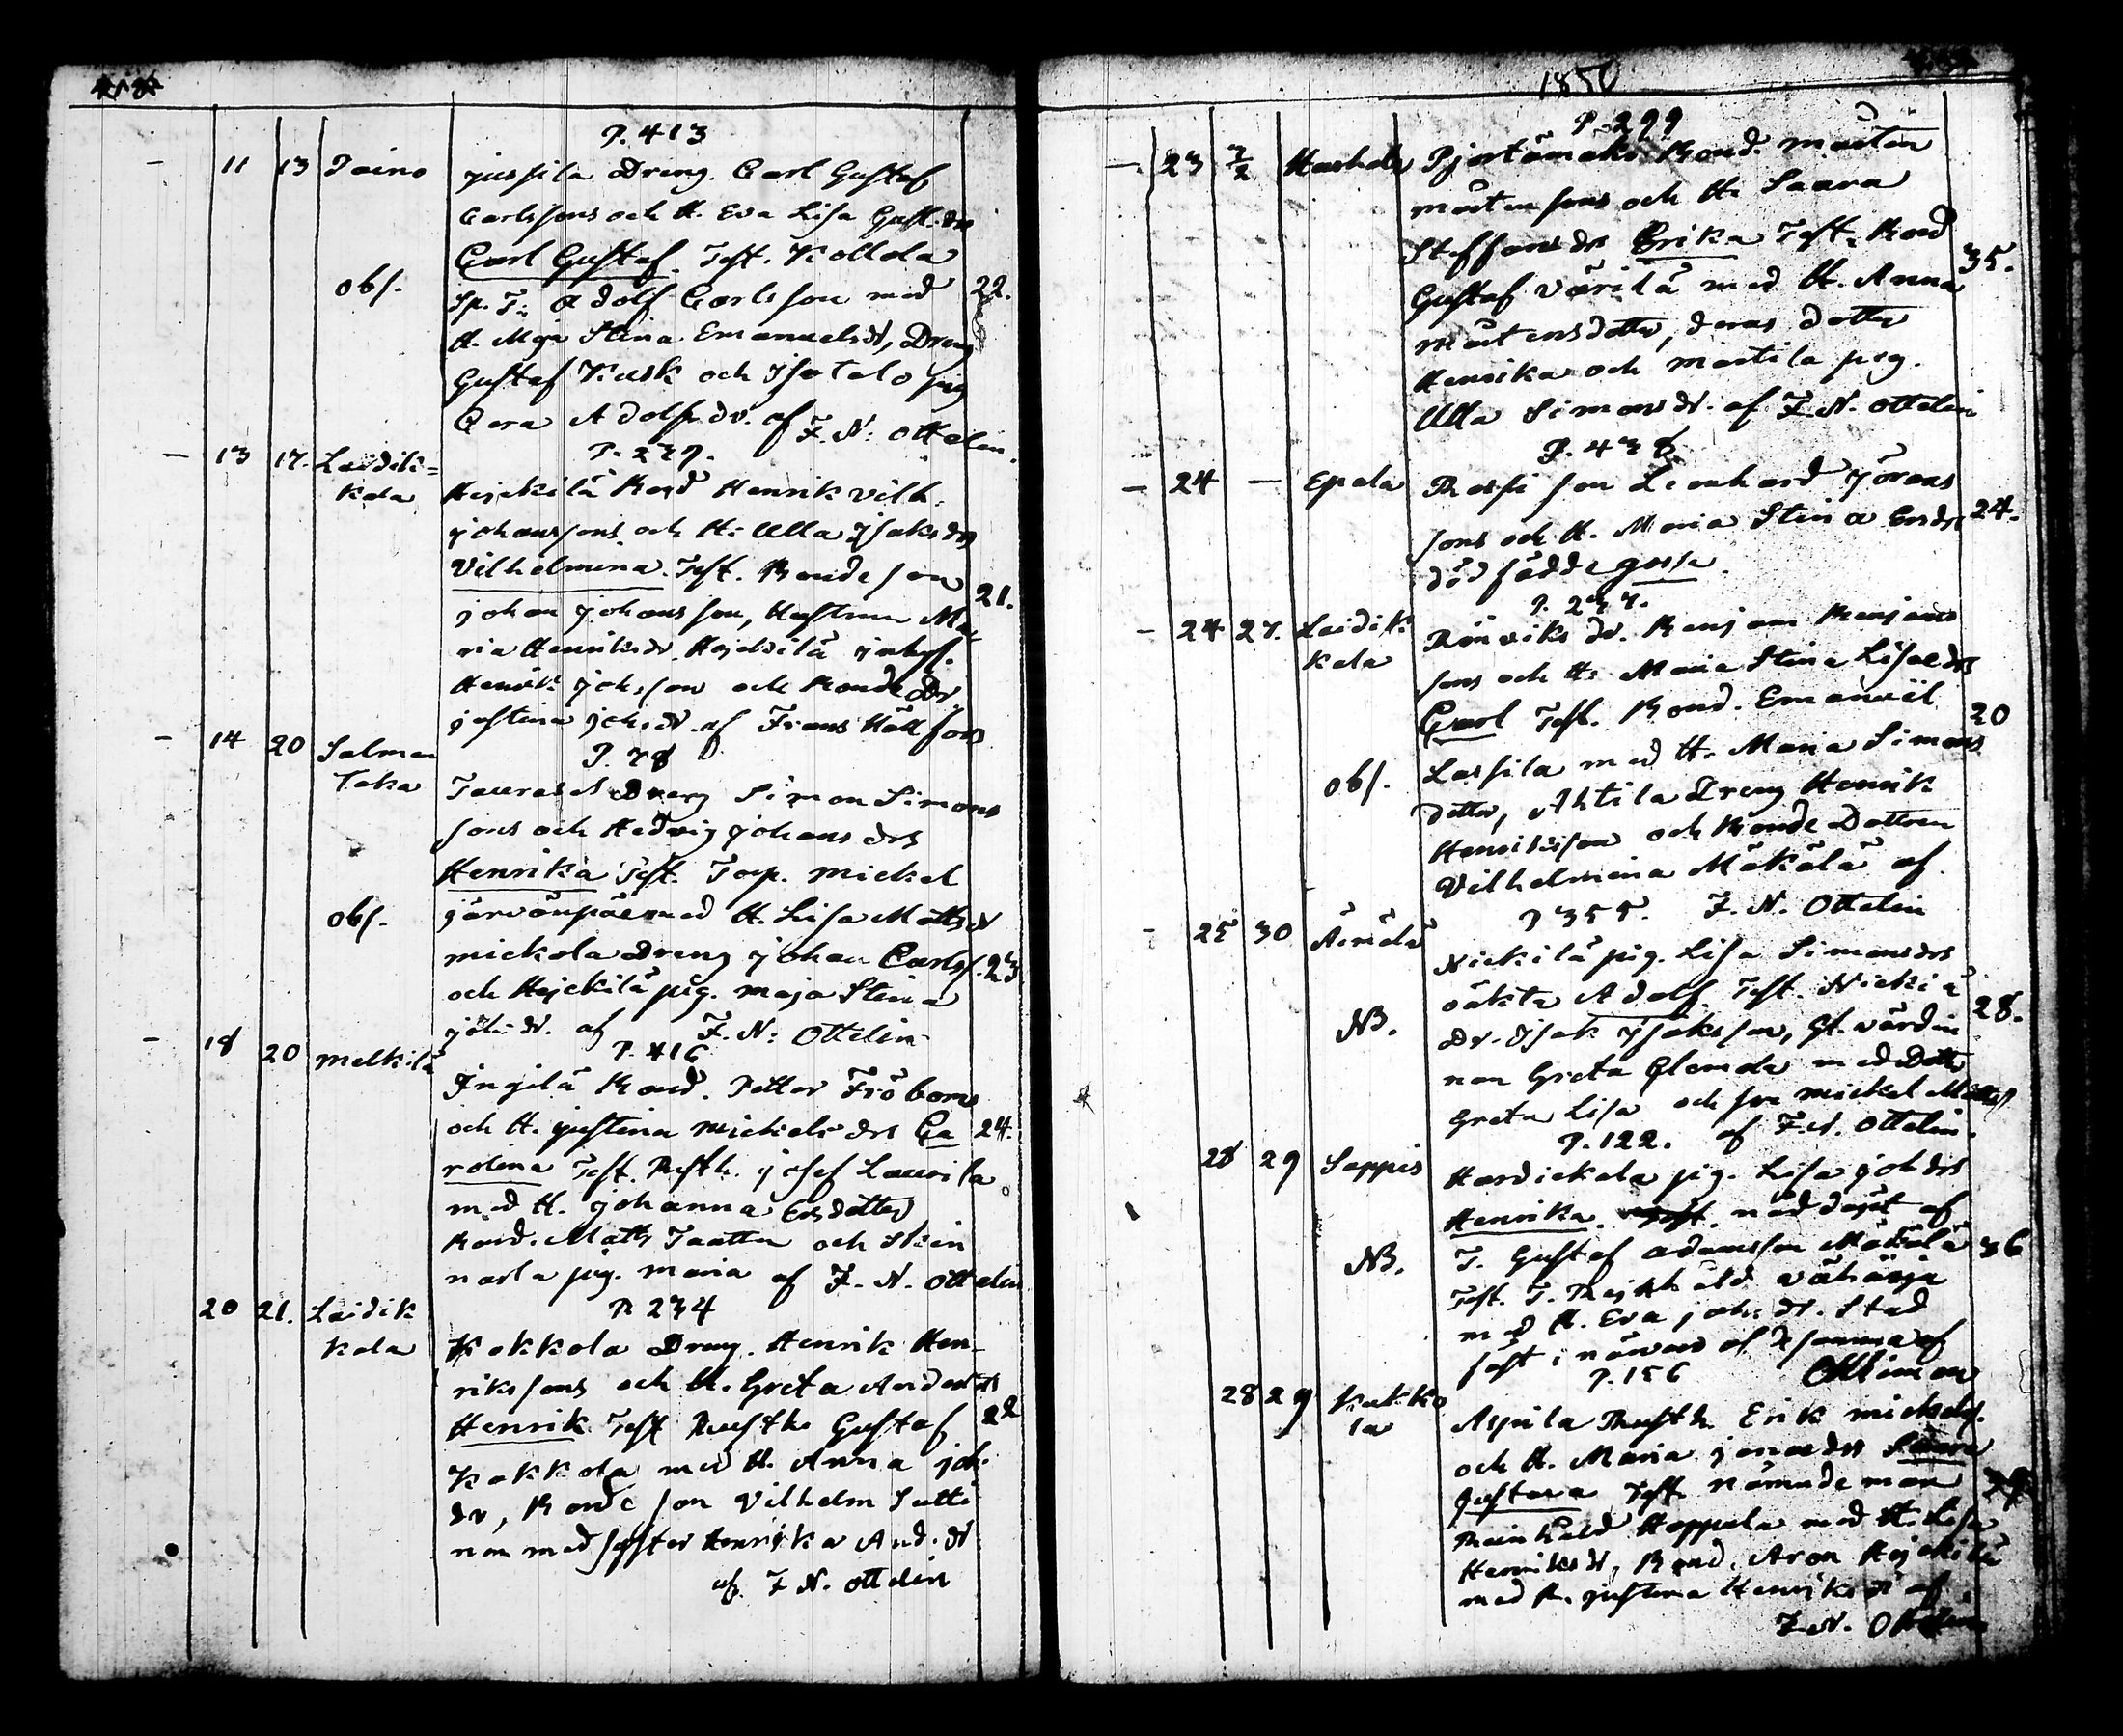 P. 413
11 13 Taino Jussila Dreng. Carl Gustaf
Carlssons och H. Eva Lisa Gust. dr
Carl Gustaf. Test. Kollola
obs. Sp. T: Adolf Carlsson med 22.
H. Maja Stina Emanuelsdr, Dreng
Gustaf Kusk och Isotalo pig
Cera Adolfsdr. af F. N: Ottelin.
P. 239.
13 17. Laidik=
kala Hejckilä Bond Henrik Vilh.
Johanssons och H: Ulla Isaksdrs
Vilhelmina. Test. Bondeson 21.
Johan Johansson, Hustrun Ma
ria Henriksdr. Hejckilä inhys.
Henrik Johsson och Bonde Dr.
Justina Joh. dr. af Frans Hällfors
P. 78
14 20 Salmen
taka Dreng Simon Simons
sons och Hedvig Johans drs
Henrika Test. Torp. Mickel
obs. Järvänpää med H. Lisa Mattsdr
Mickola Dreng Johan Carlss. 23
och Hejckilä pig. Maja Stina
Joh: dr. af F. N: Ottelin
P. 416
18 20 Melkilä Ingilä Bond. Petter Fröboms
och H. Justina Mickels drs Ca 24.
rolina Test. Rusth. Josef Laurila
med H. Johanna Ersdotter
Bond. Matts Taatten och Skin
narla pig. Maria af F. N. Ottelin
P. 234
20 21. Laidik
kala Kokkola Dreng. Henrik Hen
rikssons och H. Greta Anders drs
Henrik Test Rusth. Gustaf 22
Kokkola med H. Anna Joh.
dr, Bondeson Vilhelm Sutti
nen med syster Henrika And. dr
af F. N. Ottelin
1850
P. 299
23 2/2 Bond. Mårten
Mårtensons och H. Saara
Staffans drs Erika Test. Bond
Gustaf Värilä med H. Anna 35.
Mårtensdotter, deras dotter
Henrika och Martila pig.
Ulla Simonsdr. af F. N. Ottelin
P. 436
24 — Epela son Leonhard Jörans
sons och H. Maria Stina Ersdrs 24.
dödfödde gosse.
P. 237.
24 27. Laidik
kala Rönviks dr. Benjam Benjams
sons och H: Maria Stina Lisaedrs
Carl Test. Bond. Emanuël 20
obs. Lassila med H. Maria Simons
dotter, Ahtila Dreng Henrik
Henriksson och Bonde Dottren
Vilhelmina Mäkälä af
P 355. F. N. Ottelin
25 30 Äimälä Nickilä pig. Lisa Simonsdrs
oäkta Adolf. Test. Nickilä 28.
NB. Dr. Isak Isaksson, Gl. värdin
nan Greta Glemola med Dottr
Greta Lisa och son Mickel Matts
P. 122. af F. N. Ottelin.
28 29 Sappis pig. Lisa Joh drs
Henrika. nöddöpt af
NB. T. Gustaf Adamsson Mäkälä 36
Test. T.
med H. Eva Joh: dr. Stad
fäst i närvaro af desamma af
P. 156
28 29 Kukko
la Aspila Rusth Erik Mickels.
och H. Maria Jonaedrs Saara
Gustava Test. Nämndeman
Reinhold Hoppula med H. Lisa
Henriksdr, Bond. Aron Hejckilä
med H. Justina Henriks dr af
F. N. Ottelin